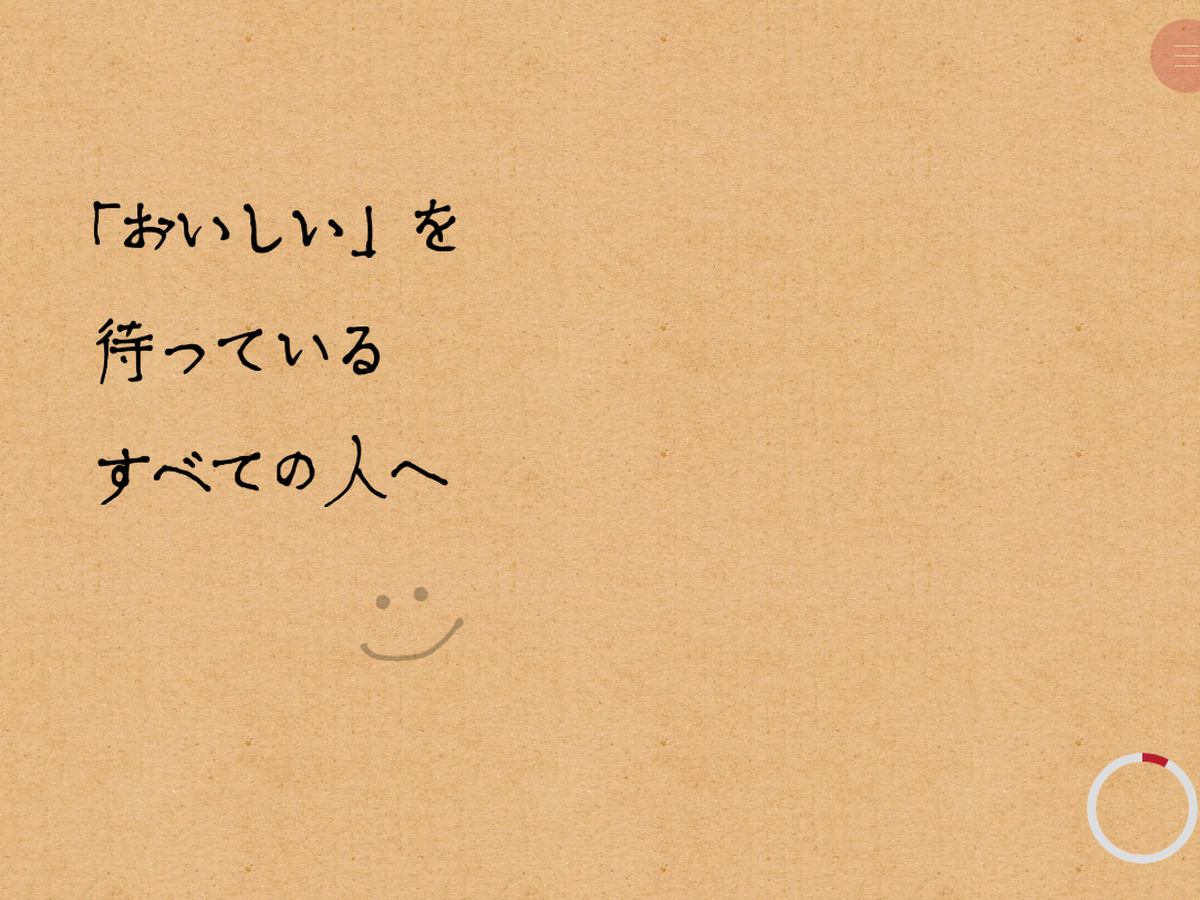 「おいしい」を
待っている
すべての人へ